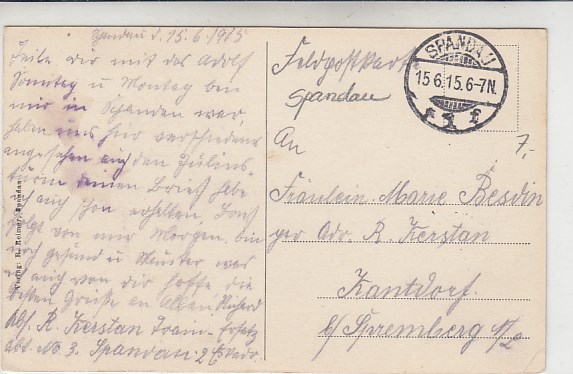 Spandau d. 15.6.1915
Teile dir mit das Adolf
Sonntag u Montag bei
mir in Spandau war,
haben uns hier verschiedenes
angesehen auch den Julius-
turm deinen Brief habe
auch schon erhalten, Brief
folgt von mir Morgen, bin
noch gesund u Munter was
auch von dir hoffe die
besten Grüße an Allen Richard
Abs. R. Kerstan Train-Ersatz
Abt. No 3. Spandau 2
Verlag: R. Reimer, Spandau
Feldpostkarte
Spandau
SPANDAU
15.6.15.6-7N.
An
7,-
Fräulein Marie
per Adr. R. Kerstan
Kantdorf
b/ Spremberg